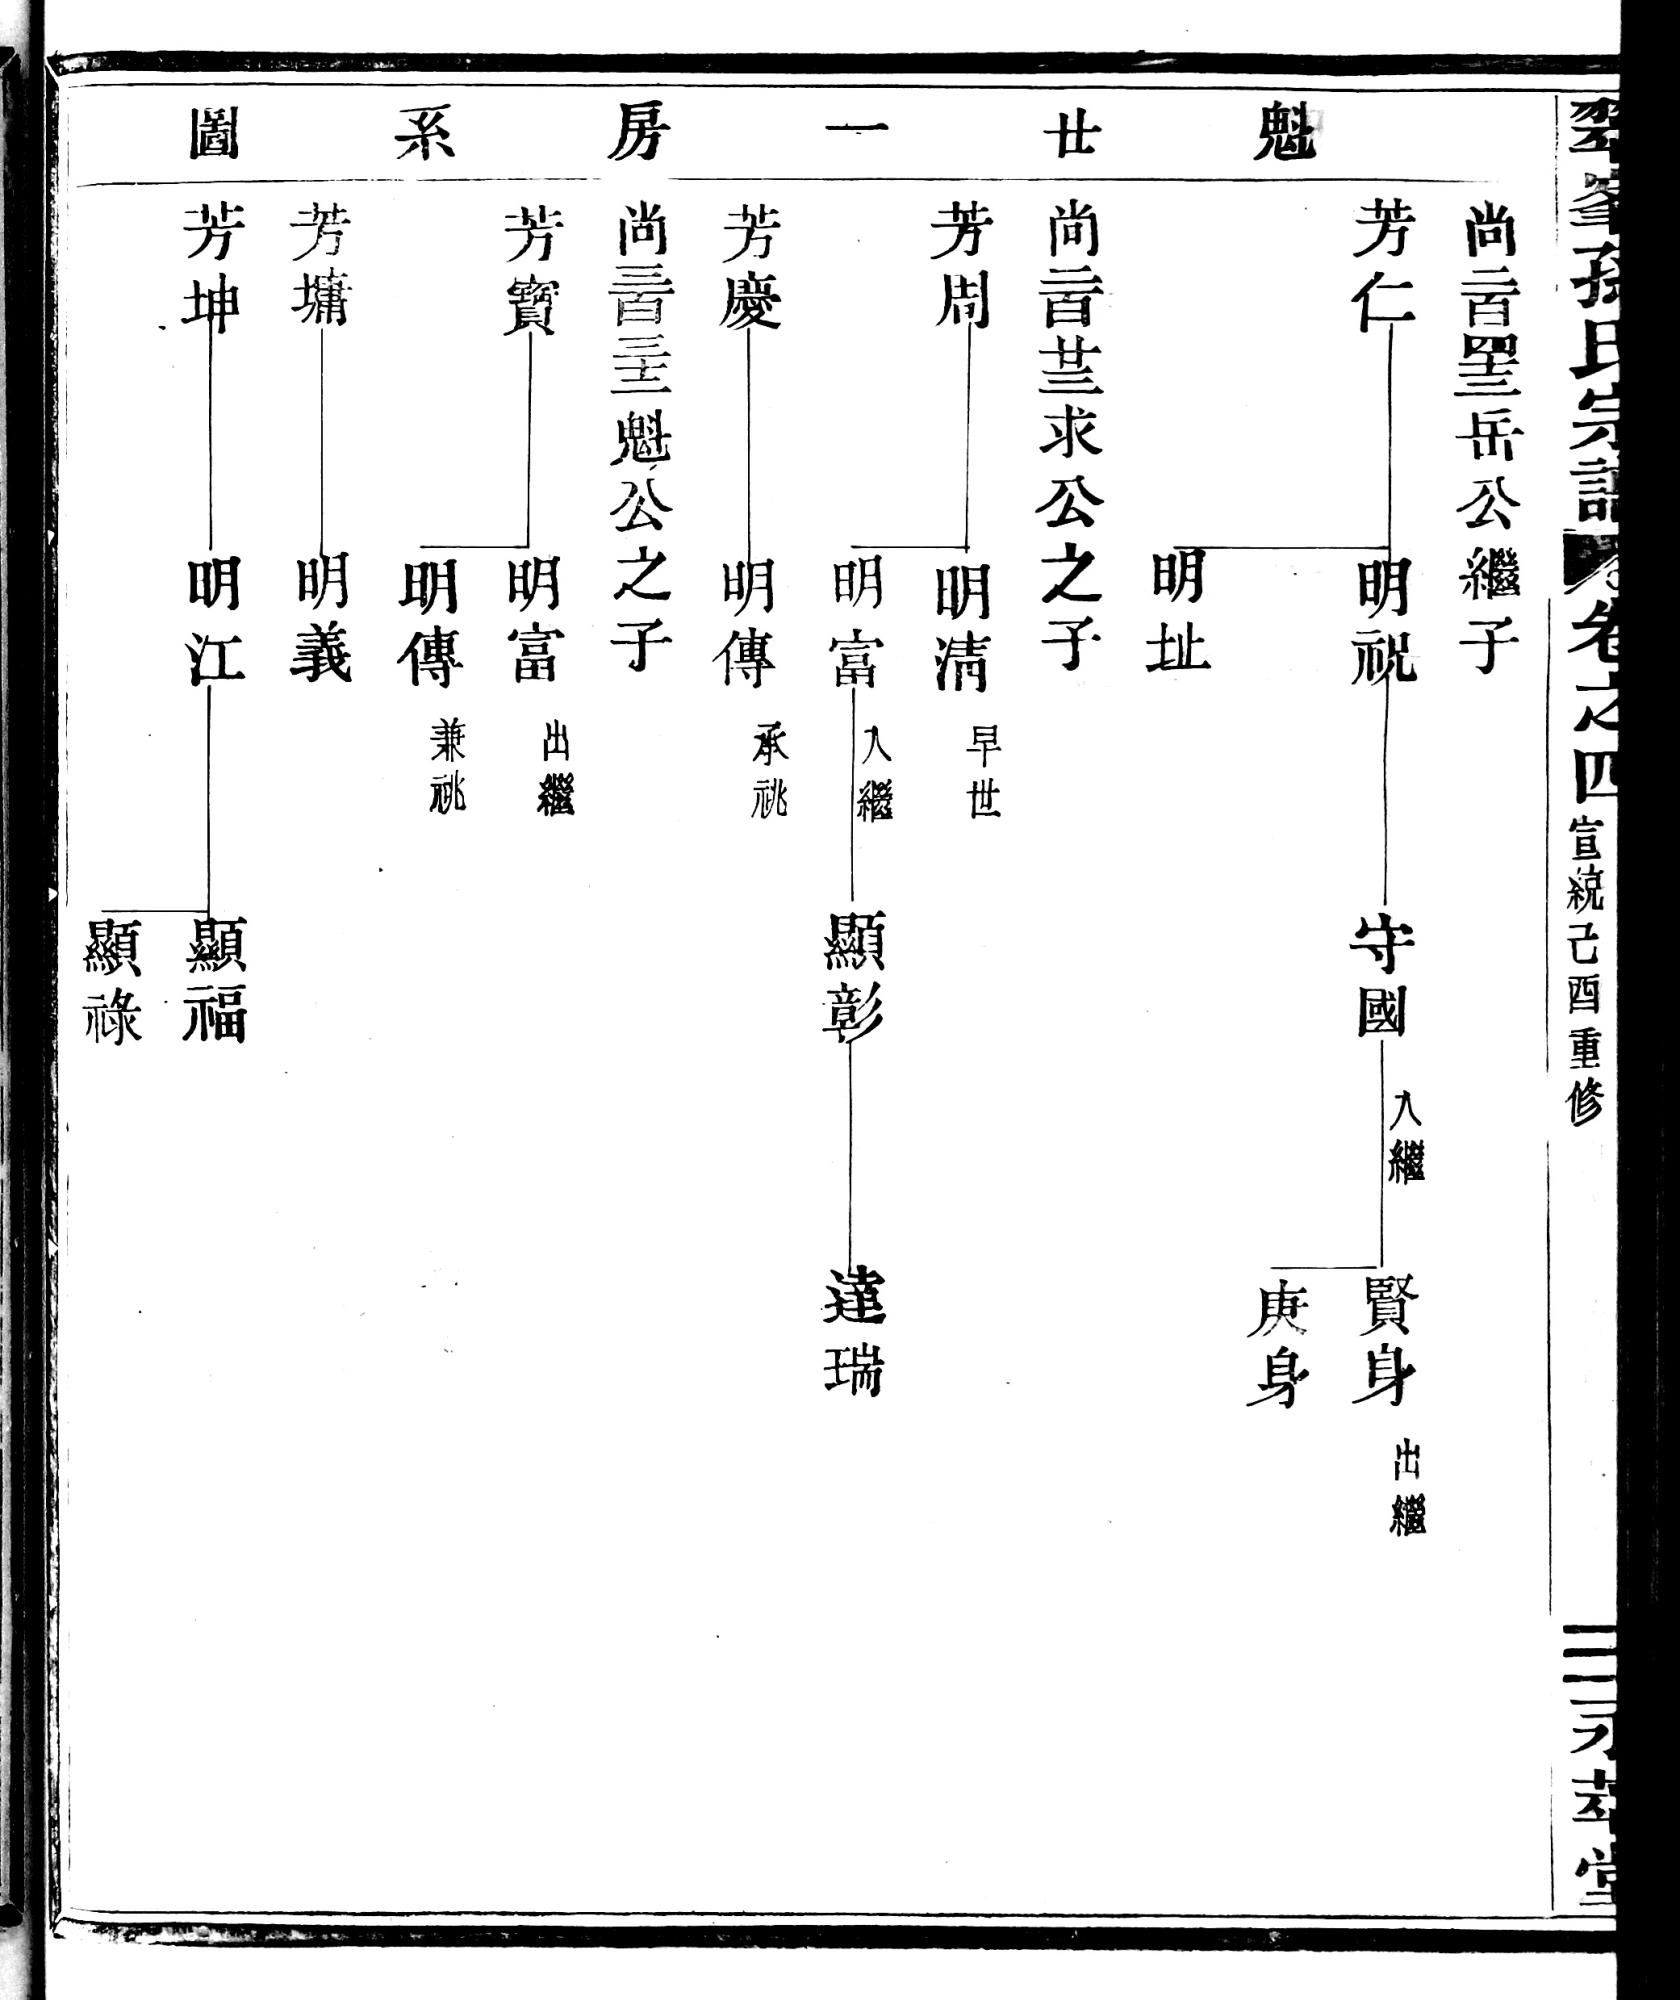 翠峯孫氏宗譜 卷之四 宣統己酉重修
永萃堂
魁廿一房系圖
尚二百四十三岳公繼子
芳仁 明祝 守國 入繼 賢身 出繼
庚身
明址
尚二百廿三求公之子
芳周 明清 早世
明富 入繼 顯彰 達瑞
芳慶 明傳 承祧
尚三百三十二魁公之子
芳寶 明富 出繼
明傳 兼祧
芳墉 明義
芳坤 明江 顯福
顯祿